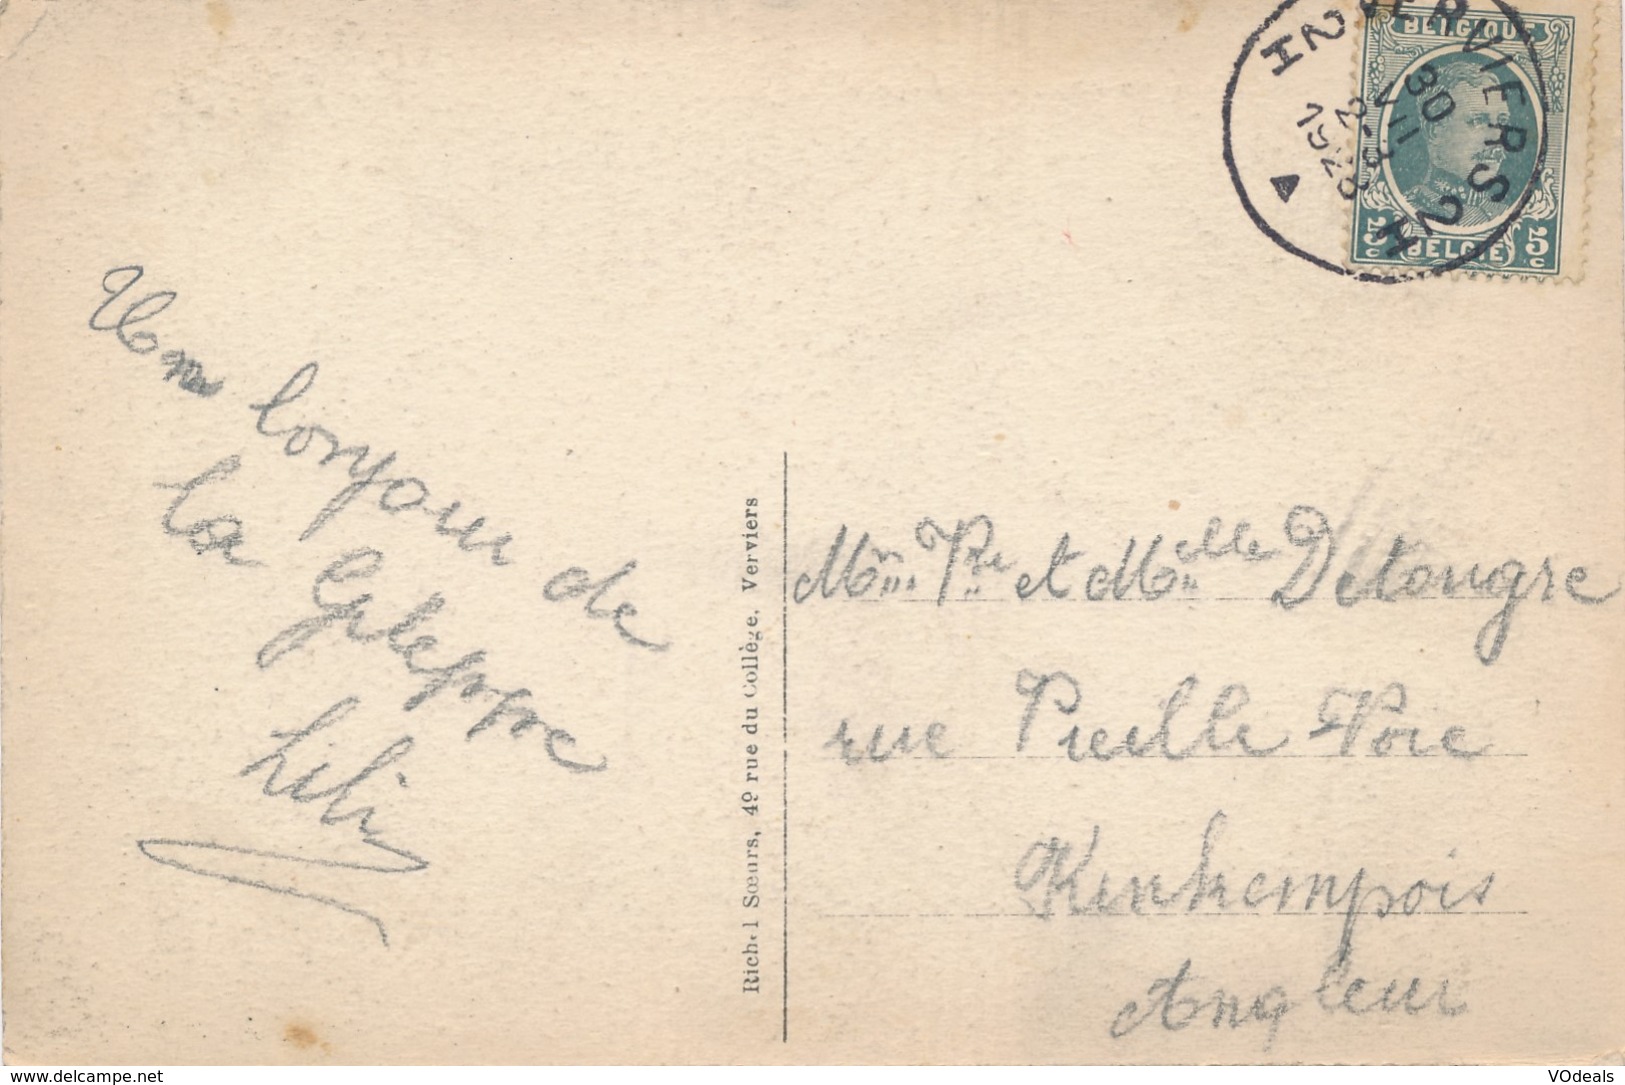 BELGIQUE
VERVIERS 2H
2H
30
VII
2-3
1928
5c 5c
BELGIE
Un bonjour de
la Gileppe
Lili
Richel Sœurs, 49 rue du Collège. Verviers
et Delougre
rue Vieille Voie
Kinkempois
Angleur
www.delcampe.net
VOdeals